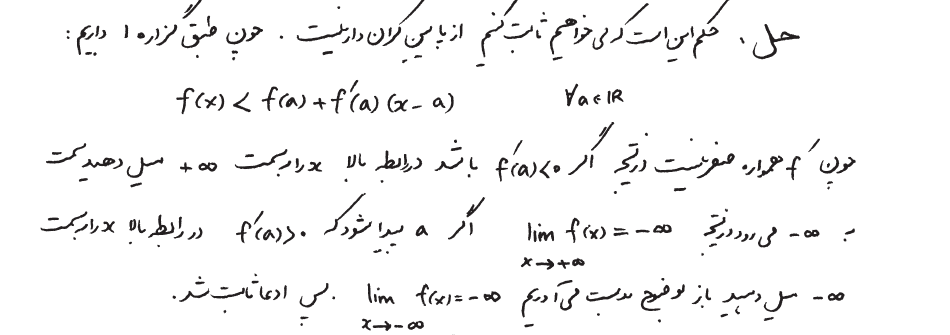 حل. حکم این است که می خواهیم ثابت کنیم از پایین کران دار نیست. چون طبق گزاره ۱ داریم:
f(x) < f(a) + f'(a) (x - a) ∀a∈ℝ
چون f' همواره صفر نیست در نتیجه اگر f'(a)<0 باشد در رابطه بالا x را به سمت +∞ میل دهید سمت
به -∞ می رود در نتیجه lim f(x) = -∞ اگر a پیدا شود که f'(a)>0 در رابطه بالا x را به سمت
x→+∞
-∞ میل دهید باز به وضوح بدست می آوریم lim f(x) = -∞ . پس ادعا ثابت شد.
x→-∞